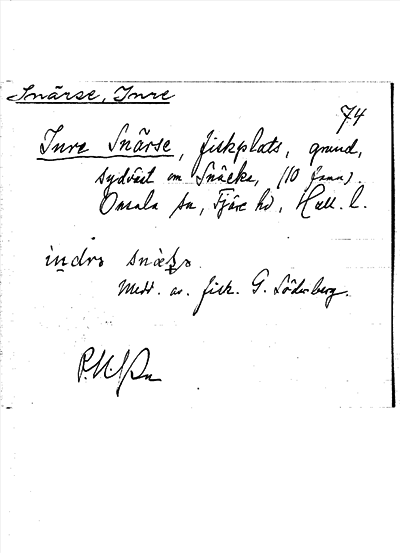 Snärse, Inre
74
Inre Snärse, fiskplats, grund,
sydväst om Snäcke, (10 famn)
Onsala sn, Fjäre hd, Hall. l.
Medd. av fisk. G. Söderberg.